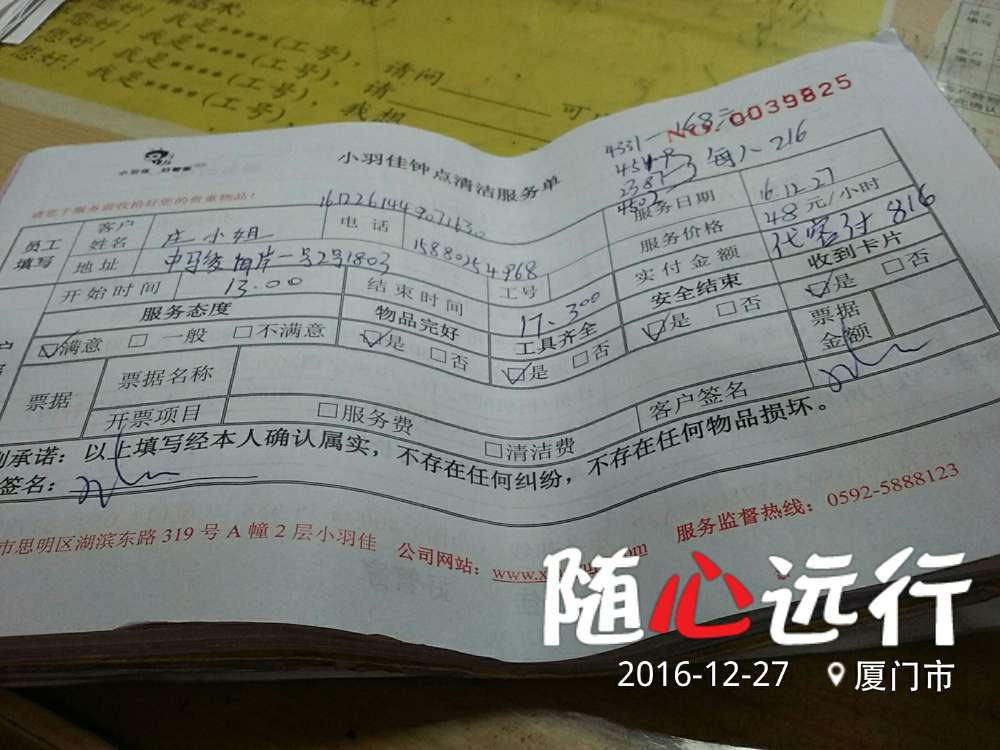 您好！我是****(工号)，请问
您好！我是****(工号)，请
您好！我是****(工号)，我想
小羽佳 好管家
小羽佳钟点清洁服务单
NO.0039825
4331—168元
每人216
请您于服务前收拾好您的贵重物品！
1612261449071630
员工填写 客户姓名 庄小姐 电话 15880254968 服务日期 16.12.27
地址 1号2号1803 工号 服务价格 48元/小时
开始时间 13.00 结束时间 17.300 实付金额 代客付816
服务态度 物品完好 工具齐全 安全结束 收到卡片
☑满意 □一般 □不满意 ☑是 □否 ☑是 □否 ☑是 □否 ☑是 □否
票据 票据名称 票据金额
开票项目 □服务费 □清洁费 客户签名
承诺：以上填写经本人确认属实，不存在任何纠纷，不存在任何物品损坏。
签名：
市思明区湖滨东路319号A幢2层小羽佳 公司网站：www.x 服务监督热线：0592-5888123
随心远行
2016-12-27 厦门市